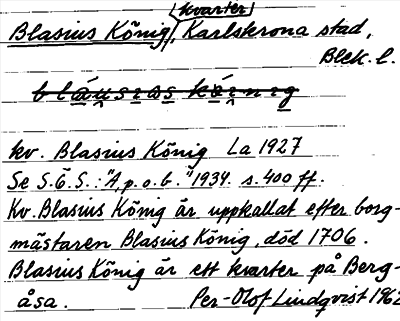 kvarter
Blasius König, Karlskrona stad,
Blek. l.
kv. Blasius König La 1927
Se S.Ö.S.: "A.p.o.b." 1934. s. 400 ff.
Kv. Blasius König är uppkallat efter borg-
mästaren Blasius König, död 1706.
Blasius König är ett kvarter på Berg-
åsa. Per-Olof Lindqvist 1962